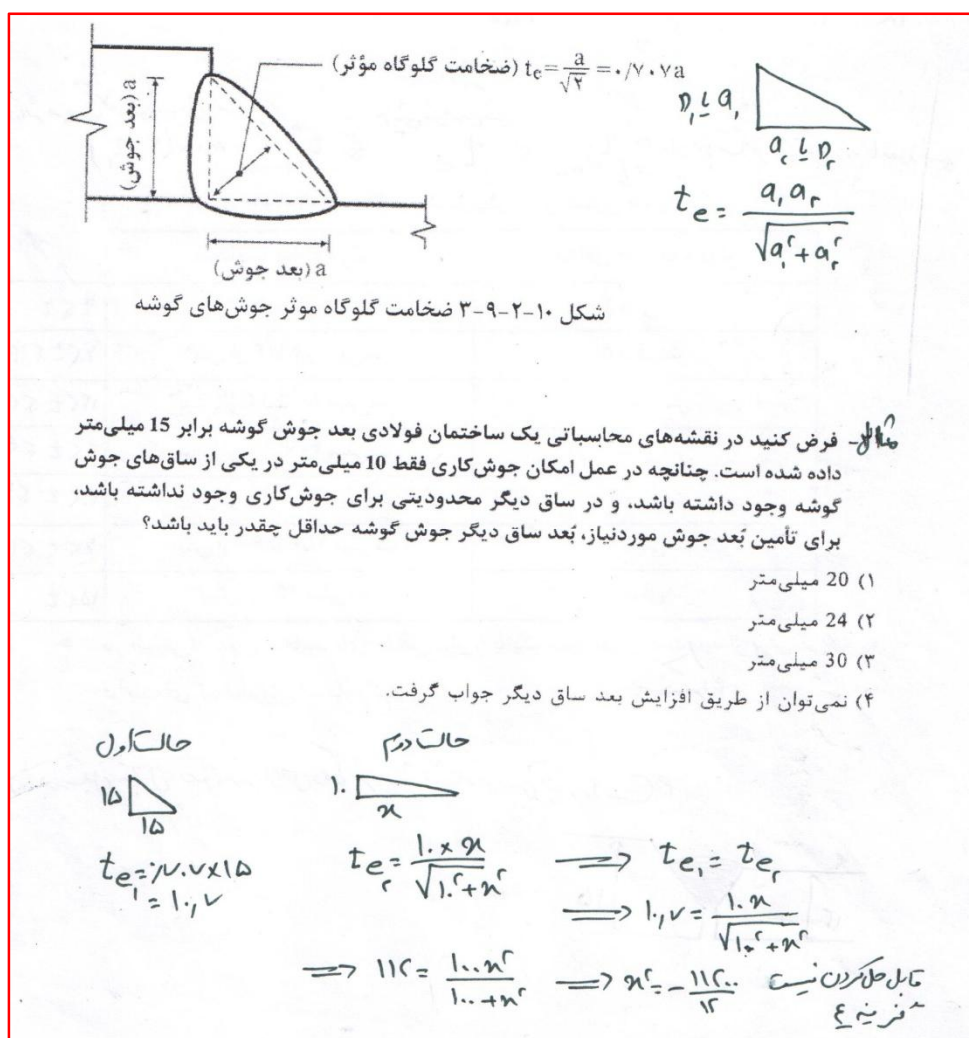 (ضخامت گلوگاه مؤثر) tₑ = a/√۲ = ۰/۷۰۷a
a (بعد جوش)
a (بعد جوش)
D₁ یا a₁
a₂ یا D₂
tₑ = a₁a₂ / √(a₁² + a₂²)
شکل ۱۰-۲-۹-۳ ضخامت گلوگاه موثر جوش‌های گوشه
مثال- فرض کنید در نقشه‌های محاسباتی یک ساختمان فولادی بعد جوش گوشه برابر 15 میلی‌متر
داده شده است. چنانچه در عمل امکان جوش‌کاری فقط 10 میلی‌متر در یکی از ساق‌های جوش
گوشه وجود داشته باشد، و در ساق دیگر محدودیتی برای جوش‌کاری وجود نداشته باشد،
برای تأمین بُعد جوش موردنیاز، بُعد ساق دیگر جوش گوشه حداقل چقدر باید باشد؟
۱) 20 میلی‌متر
۲) 24 میلی‌متر
۳) 30 میلی‌متر
۴) نمی‌توان از طریق افزایش بعد ساق دیگر جواب گرفت.
حالت اول
۱۵
۱۵
tₑ₁ = ۰/۷۰۷×۱۵
= ۱۰,۷
حالت دوم
۱۰
x
tₑ₂ = ۱۰×x / √(۱۰² + x²) ⟹ tₑ₁ = tₑ₂
⟹ ۱۰,۷ = ۱۰x / √(۱۰² + x²)
⟹ ۱۱۲ = ۱۰۰x² / (۱۰۰ + x²) ⟹ x² = -۱۱۲۰۰/۱۲ قابل حل کردن نیست
گزینه ۴